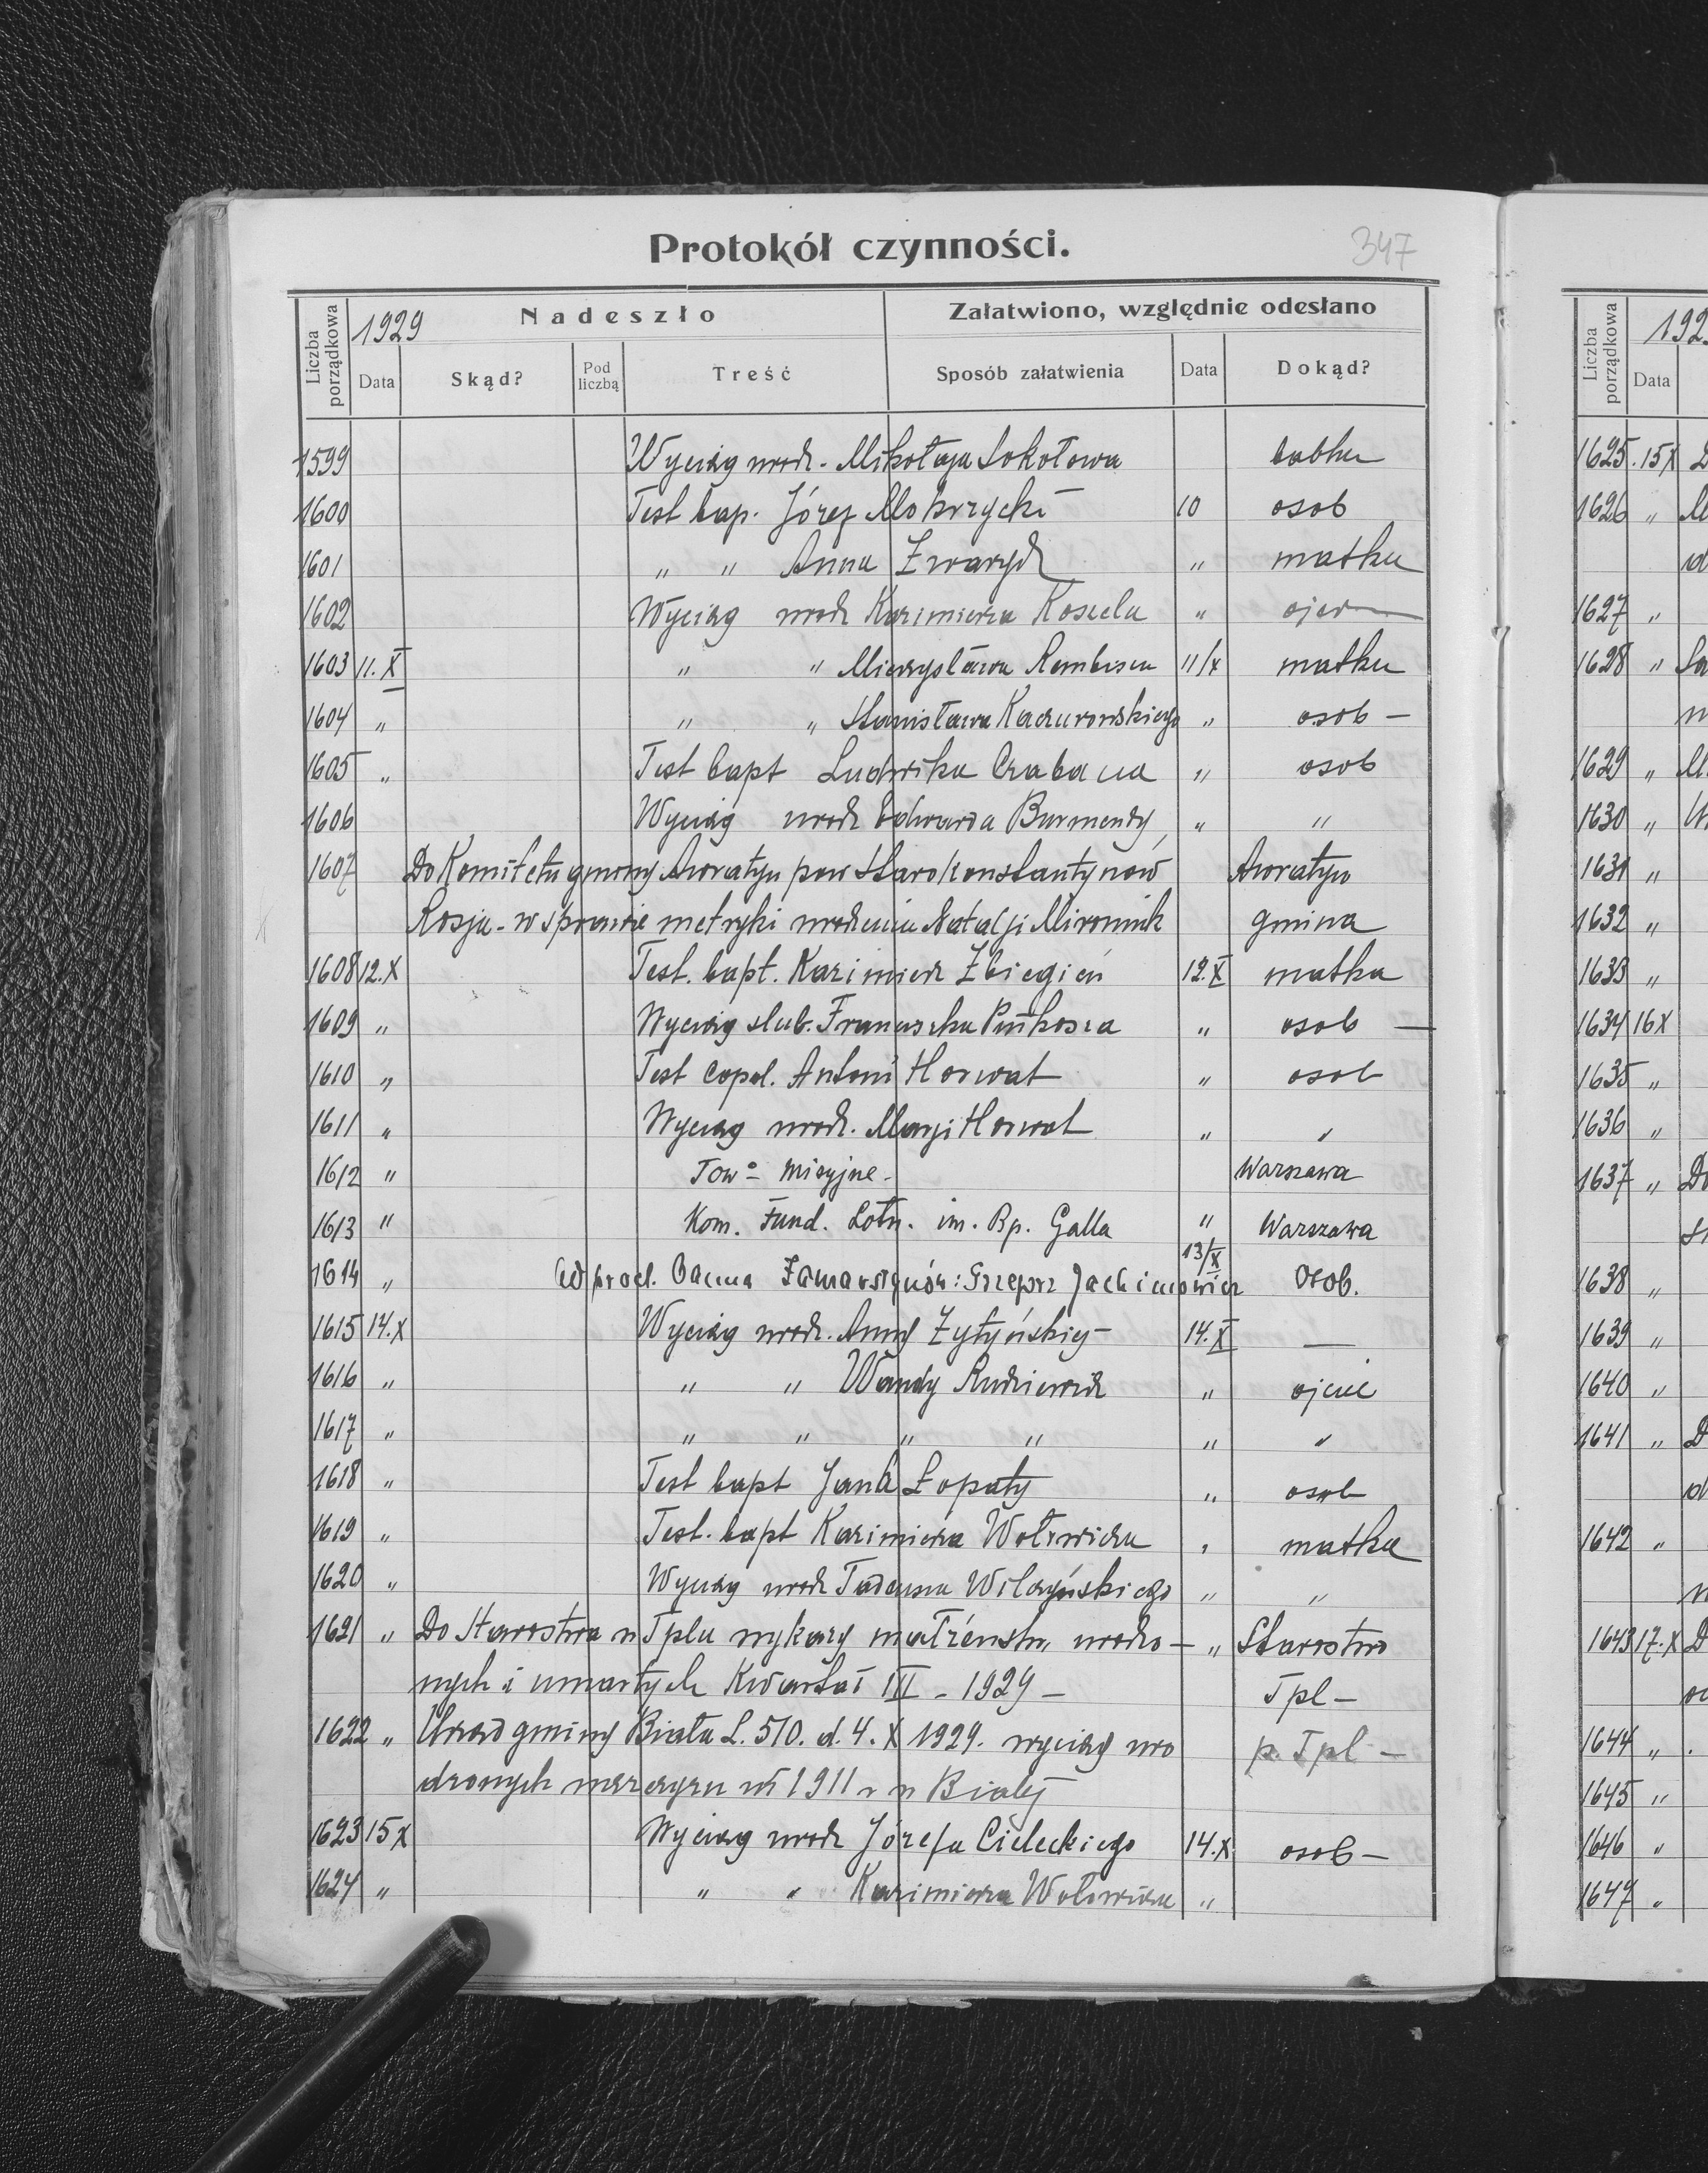 Protokół czynności.
347
Liczba porządkowa
1929
Nadeszło
Załatwiono, względnie odesłano
Data
Skąd?
Pod liczbą
Treść
Sposób załatwienia
Data
Dokąd?
1599 Wyciąg urodz. Mikołaja Sokołowa babka
1600 Test bap. Józef Mokrzycki 10 osob
1601 " " Anna Zwarycz " matka
1602 Wyciąg urodz Kazimierza " ojca
1603 11.X " " Mieczysława 11/X matka
1604 " " " Stanisława Kaczurowskiego " osob -
1605 " Test bapt Ludwika Czabana " osob
1606 Wyciąg urodz Edwarda Burmendy " "
1607 Do Komitetu gminy pow Starokonstantynów
Rosja - w sprawie metryki urodzenia Natalji Mironiuk gmina
1608 12.X Test. bapt. Kazimierz Zbiegień 12.X matka
1609 " Wyciąg slub. Franciszka " osob -
1610 " Test copul. Antoni Horwat " osob
1611 " Wyciąg urodz. Maryi Horwat " "
1612 " Tow⁰ Misyjne - Warszawa
1613 " Kom. Fund. Lotn. im. Bp. Galla " Warszawa
1614 " Zamarstynów: Grzegorz Jachimowicz 13/X Osob.
1615 14.X Wyciąg urodz. Anny Żytyńskiej - 14.X —
1616 " " " Wandy Rudziewicz " ojciec
1617 " " " " " " "
1618 " Test bapt Jana Łopaty " osob
1619 " Test. bapt Kazimierza Wołowicza " matka
1620 " Wyciąg urodz Tadeusza Wilczyńskiego " "
1621 " Do Starostwa w Tplu wykazy małżeństw, urodzo- " Starostwo
nych i umarłych Kwartał III - 1929 - Tpl -
1622 " Urząd gminy Biała L. 510. d. 4.X 1929. wyciąg uro p. Tpl -
dzonych mężczyzn w 1911 r w Białej
1623 15X Wyciąg urodz Józefa Cieleckiego 14.X osob -
1624 " " " Kazimierza Wołowicza "
Liczba porządkowa
192
Data
1625 . 15X
1626 "
1627 "
1628 "
1629 "
1630 "
1631 "
1632 "
1633 "
1634 16X
1635 "
1636 "
1637 "
1638 "
1639 "
1640 "
1641 "
1642 "
1643 17.X
1644 "
1645 "
1646 "
1647 "